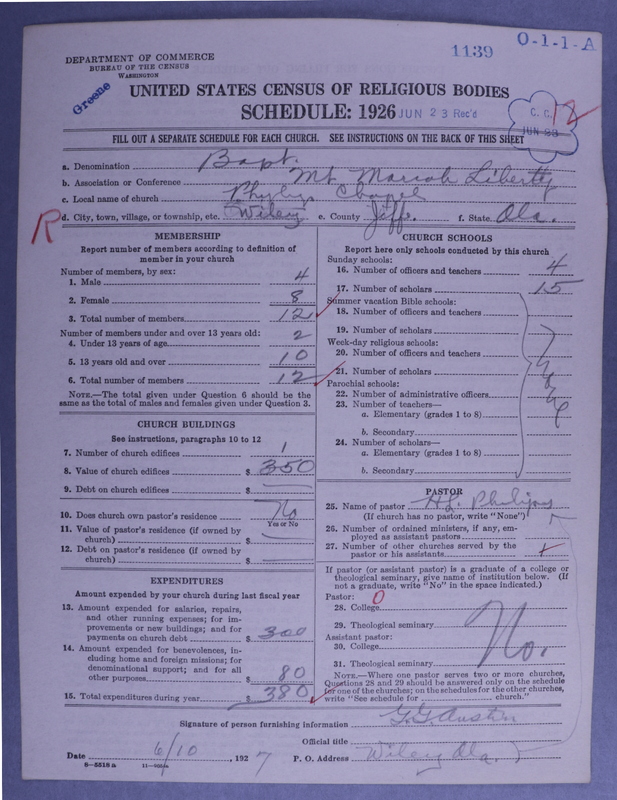 1139
O-1-1-A
DEPARTMENT OF COMMERCE
BUREAU OF THE CENSUS
WASHINGTON
Greene
UNITED STATES CENSUS OF RELIGIOUS BODIES
SCHEDULE: 1926 JUN 23 Rec'd
C. C. 12
JUN 23
FILL OUT A SEPARATE SCHEDULE FOR EACH CHURCH. SEE INSTRUCTIONS ON THE BACK OF THIS SHEET
a. Denomination Bapt.
b. Association or Conference Mt. Mariah Liberty
c. Local name of church Chapel
R d. City, town, village, or township, etc. Wiley e. County Jeffe. f. State. Ala.
MEMBERSHIP
Report number of members according to definition of
member in your church
Number of members, by sex:
1. Male 4
2. Female 8
3. Total number of members 12
Number of members under and over 13 years old:
4. Under 13 years of age 2
5. 13 years old and over 10
6. Total number of members 12
NOTE.—The total given under Question 6 should be the
same as the total of males and females given under Question 3.
CHURCH BUILDINGS
See instructions, paragraphs 10 to 12
7. Number of church edifices 1
8. Value of church edifices $ 350
9. Debt on church edifices $
10. Does church own pastor's residence? No
Yes or No
11. Value of pastor's residence (if owned by
church) $
12. Debt on pastor's residence (if owned by
church) $
EXPENDITURES
Amount expended by your church during last fiscal year
13. Amount expended for salaries, repairs,
and other running expenses; for im-
provements or new buildings; and for
payments on church debt $ 300
14. Amount expended for benevolences, in-
cluding home and foreign missions; for
denominational support; and for all
other purposes $ 80
15. Total expenditures during year $ 380
CHURCH SCHOOLS
Report here only schools conducted by this church
Sunday schools:
16. Number of officers and teachers 4
17. Number of scholars 15
Summer vacation Bible schools:
18. Number of officers and teachers
19. Number of scholars
Week-day religious schools:
20. Number of officers and teachers
21. Number of scholars
Parochial schools:
22. Number of administrative officers
23. Number of teachers—
a. Elementary (grades 1 to 8)
b. Secondary
24. Number of scholars—
a. Elementary (grades 1 to 8)
b. Secondary
PASTOR
25. Name of pastor
(If church has no pastor, write "None")
26. Number of ordained ministers, if any, em-
ployed as assistant pastors
27. Number of other churches served by the
pastor or his assistants
If pastor (or assistant pastor) is a graduate of a college or
theological seminary, give name of institution below. (If
not a graduate, write "No" in the space indicated.)
Pastor: 0
28. College
29. Theological seminary
Assistant pastor: No.
30. College
31. Theological seminary
NOTE.—Where one pastor serves two or more churches,
Questions 28 and 29 should be answered only on the schedule
for one of the churches; on the schedules for the other churches,
write "See schedule for church."
Signature of person furnishing information G. G. Austin
Official title
Date 6/10, 1927 P. O. Address Wiley Ala.
8-5518 a